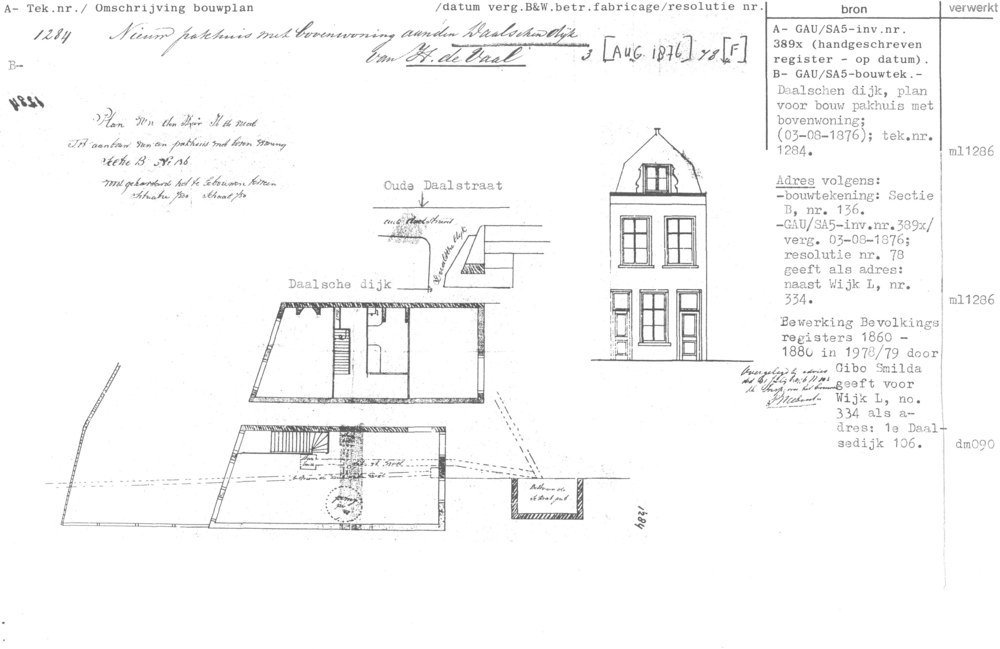 A- Tek.nr./ Omschrijving bouwplan /datum verg.B&W.betr.fabricage/resolutie nr. bron verwerkt
1284 Nieuw pakhuis met bovenwoning aan den Daalschen dijk
van H. de Vaal 3 [AUG. 1876] 78 [F]
B-
1284
Plan van den Heer H de
Tot aanbouw van een pakhuis met boven woning
Sectie B No 136
met gehandeerd het te bebouwen terrein
Situatie Schaal
Oude Daalstraat
Daalsche dijk
1284
A- GAU/SA5-inv.nr.
389x (handgeschreven
register - op datum).
B- GAU/SA5-bouwtek.-
Daalschen dijk, plan
voor bouw pakhuis met
bovenwoning;
(03-08-1876); tek.nr.
1284. ml1286
Adres volgens:
-bouwtekening: Sectie
B, nr. 136.
-GAU/SA5-inv.nr.389x/
verg. 03-08-1876;
resolutie nr. 78
geeft als adres:
naast Wijk L, nr.
334. ml1286
Bewerking Bevolkings
registers 1860 -
1880 in 1978/79 door
Gibo Smilda
geeft voor
Wijk L, no.
334 als a-
dres: 1e Daal-
sedijk 106. dm090